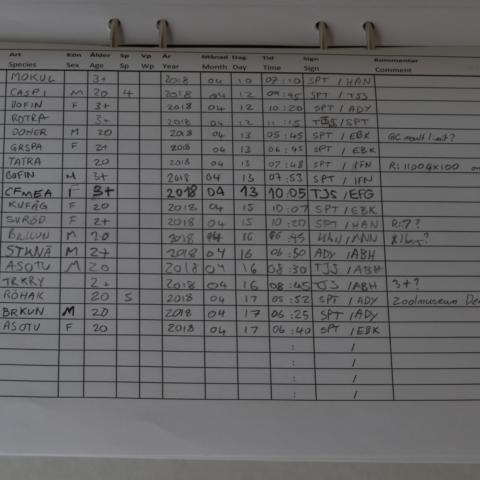 Art Kön Ålder Sp Vp År Månad Dag Tid Sign Kommentar
Species Sex Age Sp Wp Year Month Day Time Sign Comment
MOKUL 3+ 2018 04 10 07:10 SPT / HAN
CASPI M 20 4 2018 04 12 09:45 SPT / TJS
BOFIN F 3+ 2018 04 12 10:20 SPT / ADY
ROTRA 3+ 2018 04 12 11:15 TJS / SPT
DOHER M 20 2018 04 13 05:45 SPT / EBK
GRSPA F 2+ 2018 04 13 06:45 SPT / EBK
TATRA 20 2018 04 13 07:48 SPT / IFN R: 11004x100
BOFIN M 3+ 2018 04 13 07:53 SPT / IFN
CFMEA F 3+ 2018 04 13 10:05 TJS / EFG
KUFÅG F 20 2018 04 15 10:07 SPT / EBK
SVRÖD F 2+ 2018 04 15 10:20 SPT / HAN R: 7?
M 20 2018 16 :45
STKNÄ M 2+ 2018 04 16 06:50 ADY / ABH
ASOTU M 20 2018 04 16 08:30 TJS / ABH
TRKRY 2+ 2018 04 16 08:45 TJS / ABH 3+?
RÖHAK 20 S 2018 04 17 05:52 SPT / ADY Zoolmuseum
BRKUN M 20 2018 04 17 06:25 SPT / ADY
ASOTU F 20 2018 04 17 06:40 SPT / EBK
: /
: /
: /
: /